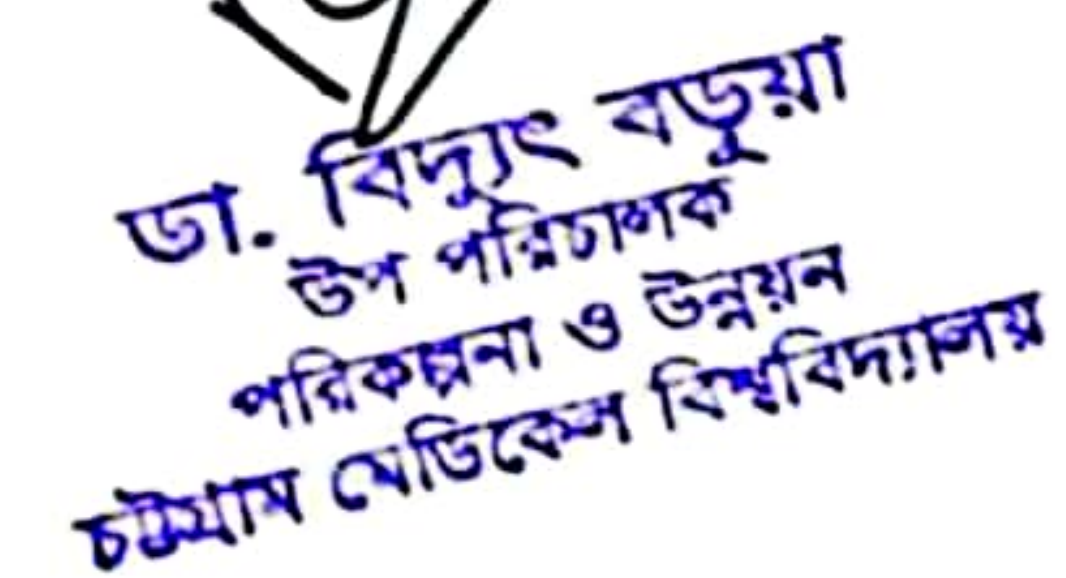 ডা. বিদ্যুৎ বড়ুয়া
উপ পরিচালক
পরিকল্পনা ও উন্নয়ন
চট্টগ্রাম মেডিকেল বিশ্ববিদ্যালয়